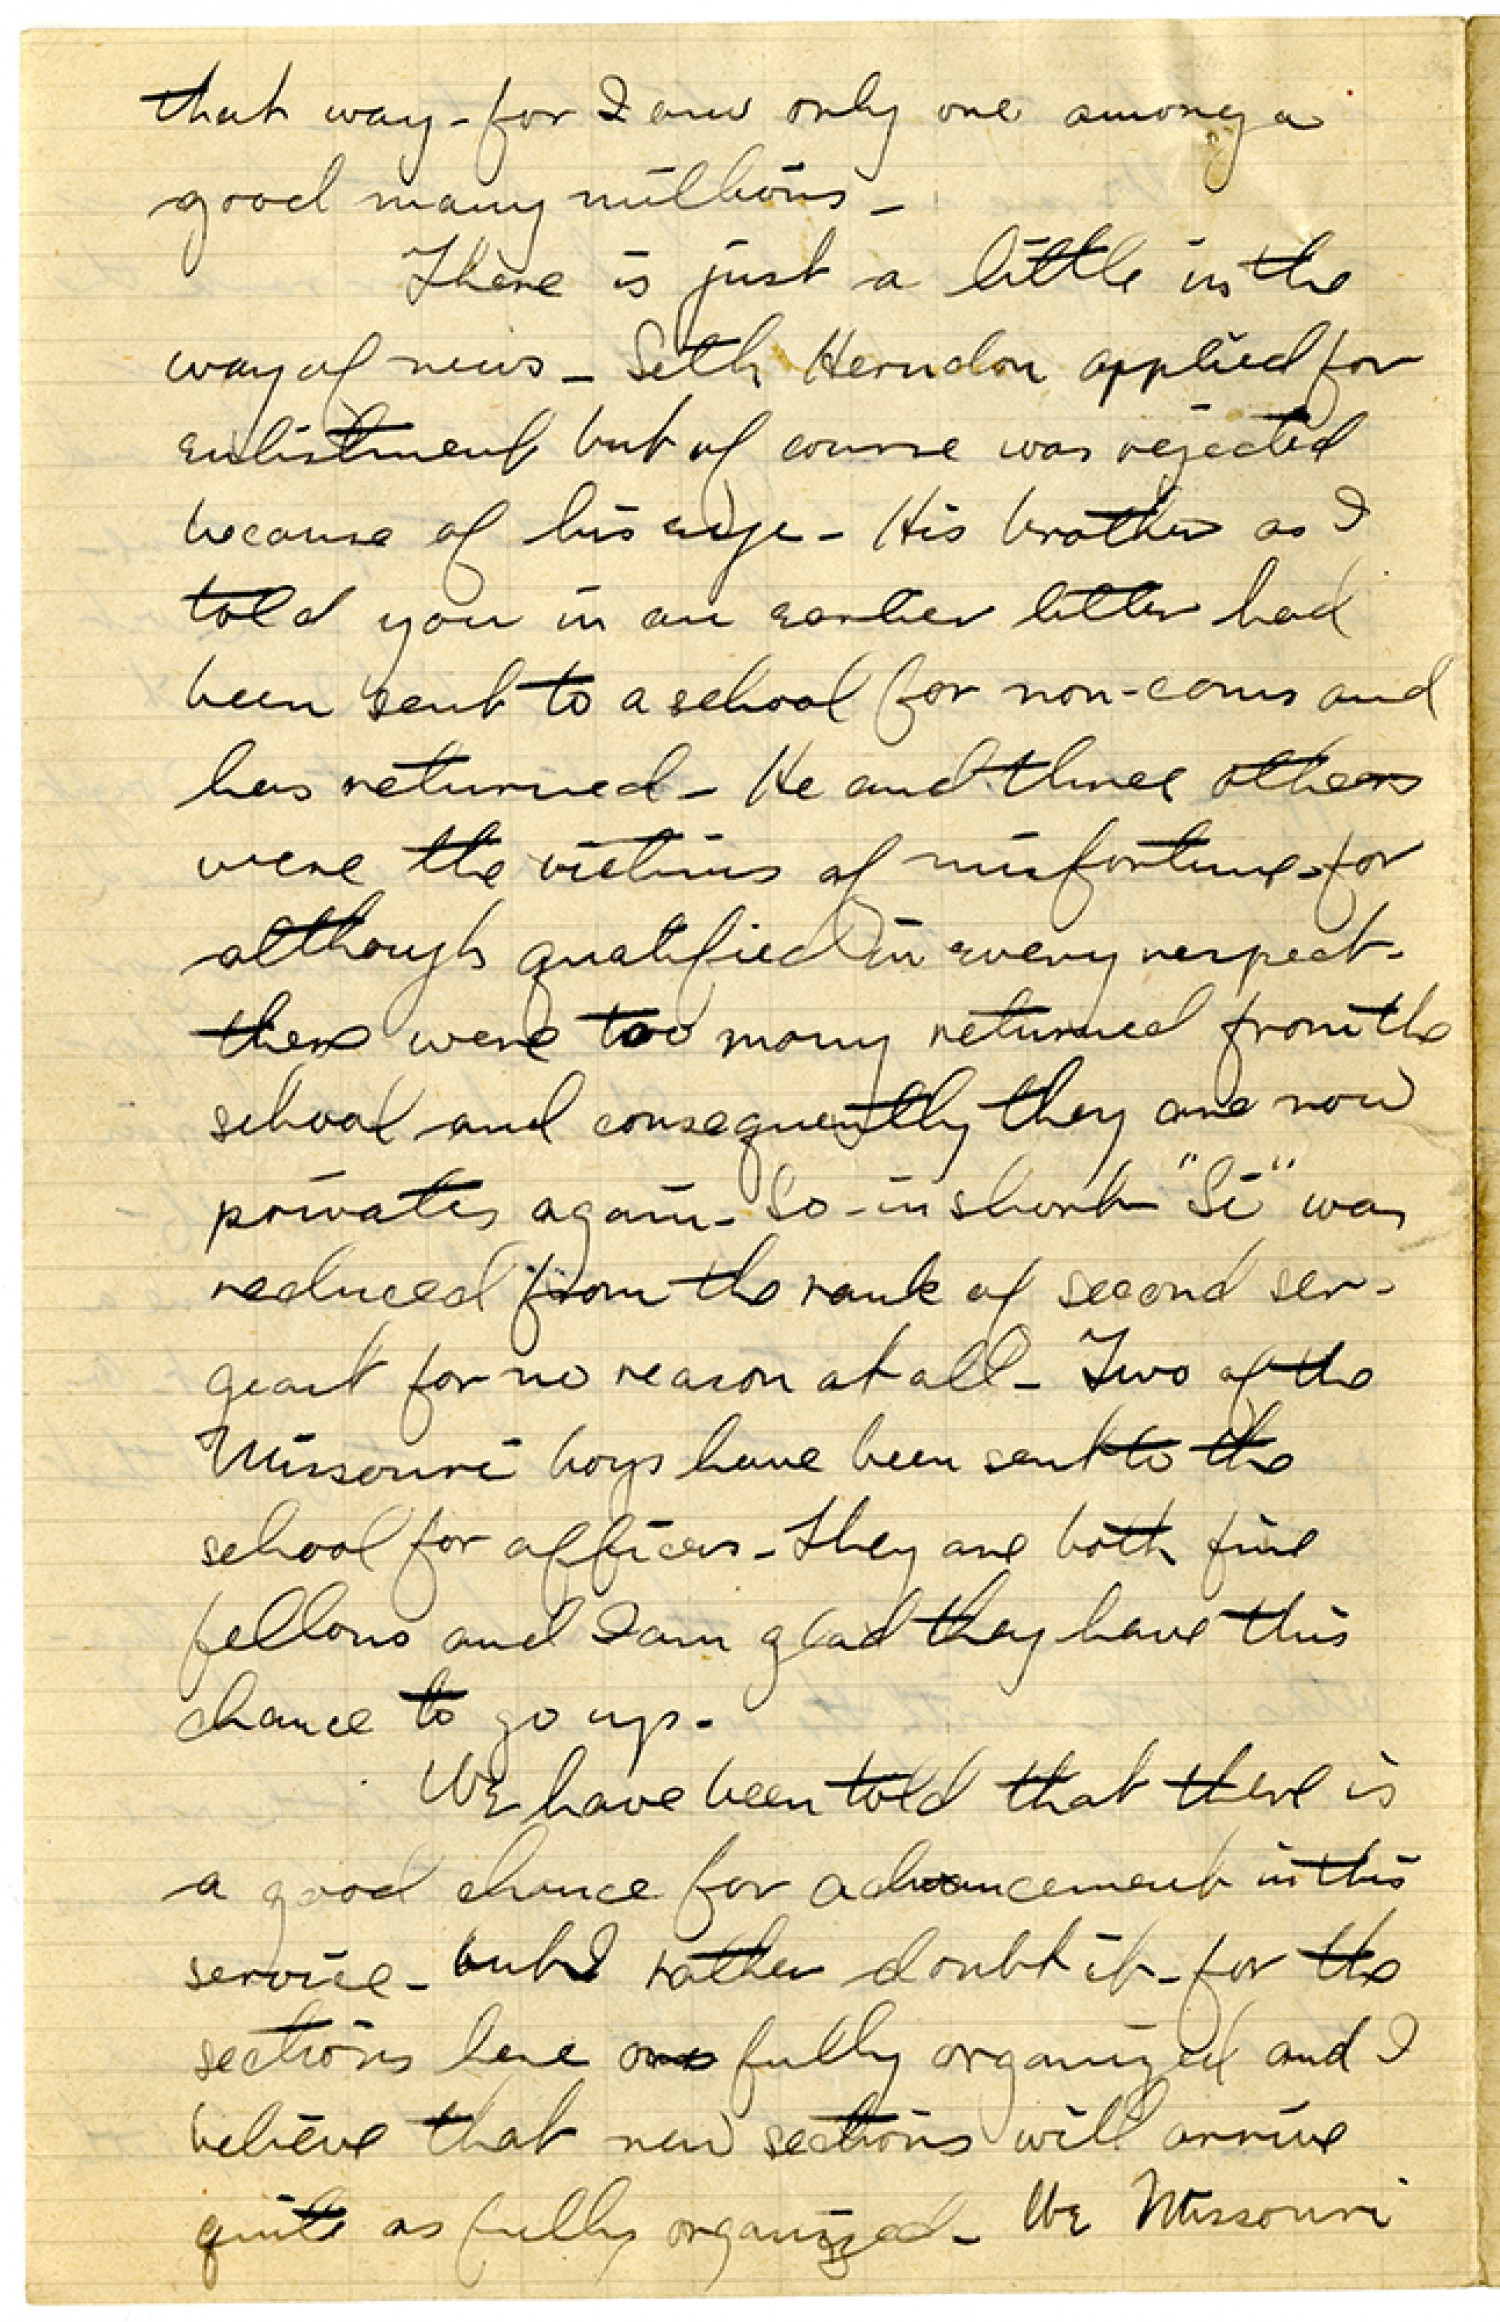 that way - for I am only one among a
good many millions -
There is just a little in the
way of news - Seth Herndon applied for
enlistment but of course was rejected
because of his eye - His brother as I
told you in an earlier letter had
been sent to a school for non-coms and
has returned - He and three others
were the victims of misfortune - for
although qualified in every respect -
there were too many returned from the
school and consequently they are now
privates again - So - in short "Si" was
reduced from the rank of second ser-
geant for no reason at all - Two of the
Missouri boys have been sent to the
school for officers - They are both fine
fellows and I am glad they have this
chance to go up -
We have been told that there is
a good chance for advancement in this
service - but I rather doubt it - for the
sections here are fully organized and I
believe that new sections will arrive
quite as fully organized - We Missouri